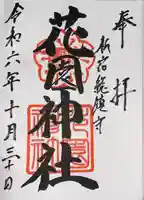 奉拝
新宿総鎮守
花園神社
令和六年十月三十日